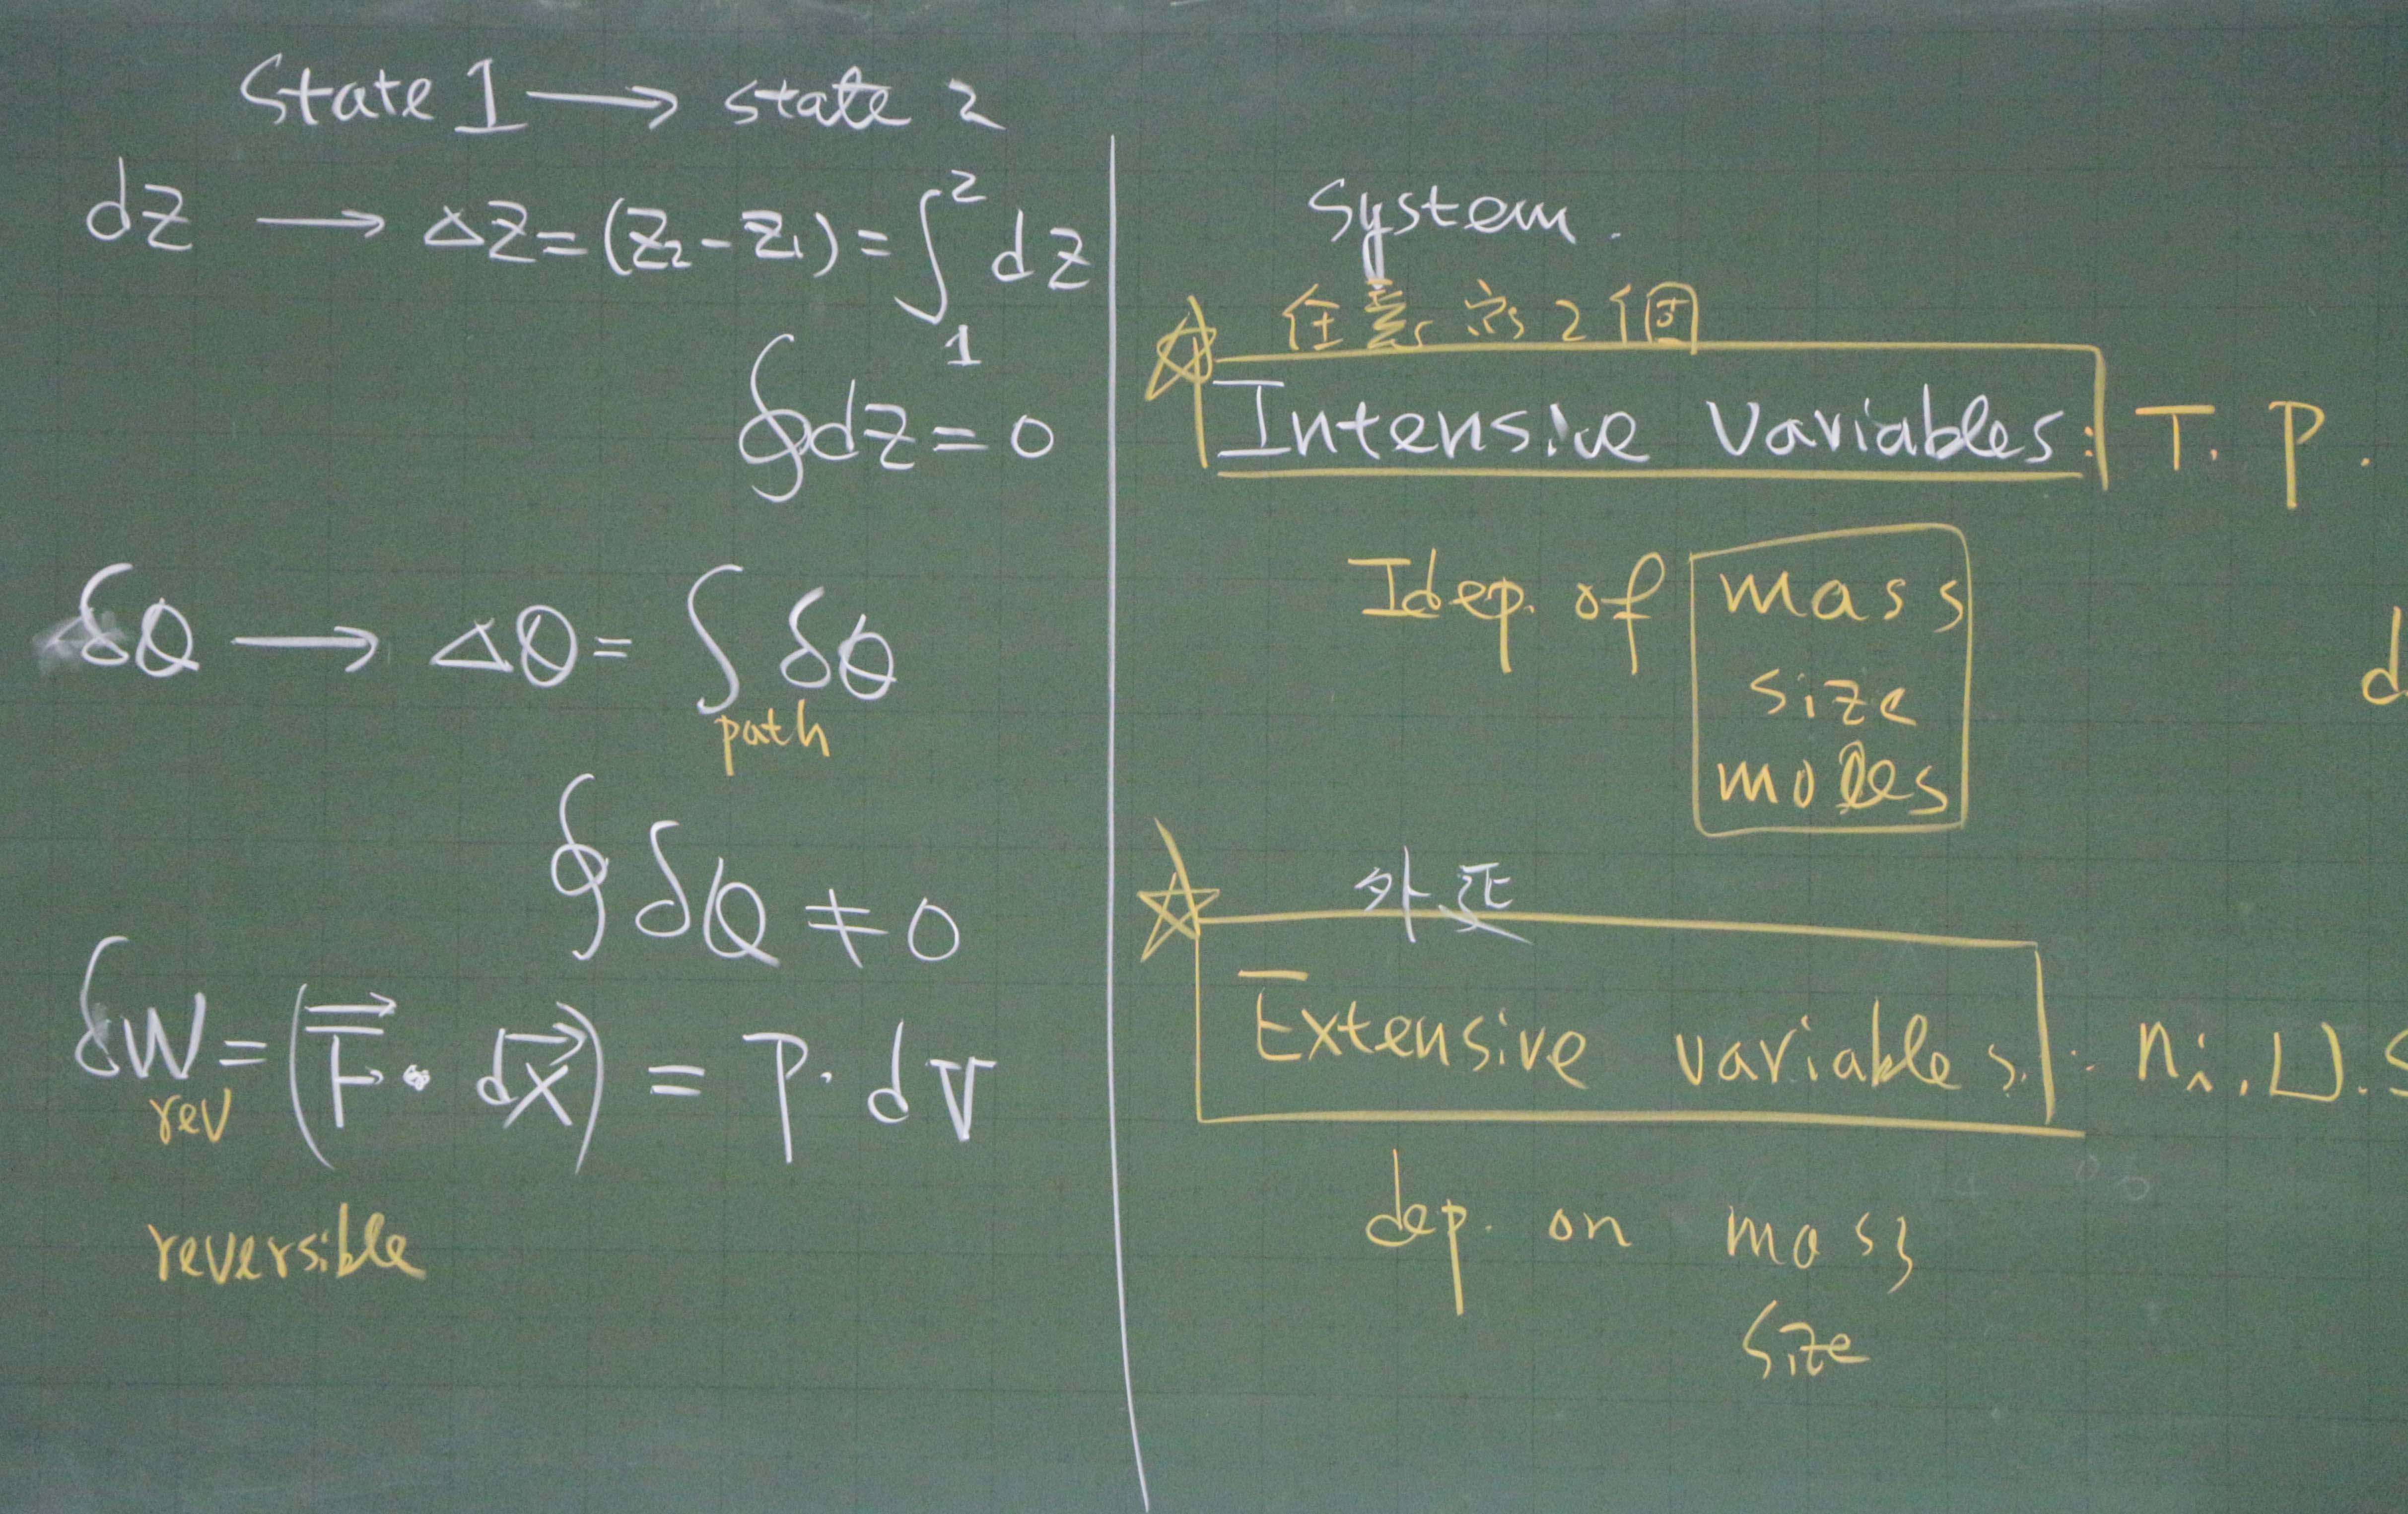 State 1 → state 2
dz → Δz = (z₂ - z₁) = ∫₁² dz
∮dz = 0
δQ → ΔQ = ∫ δQ
path
∮ δQ ≠ 0
δW = (F⃗ · dx⃗) = P · dV
rev
reversible
System.
任意的2個
☆ Intensive Variables: T. P.
Idep. of mass
size
moles
外延
☆ Extensive variables : nᵢ. U. S
dep. on mass
size